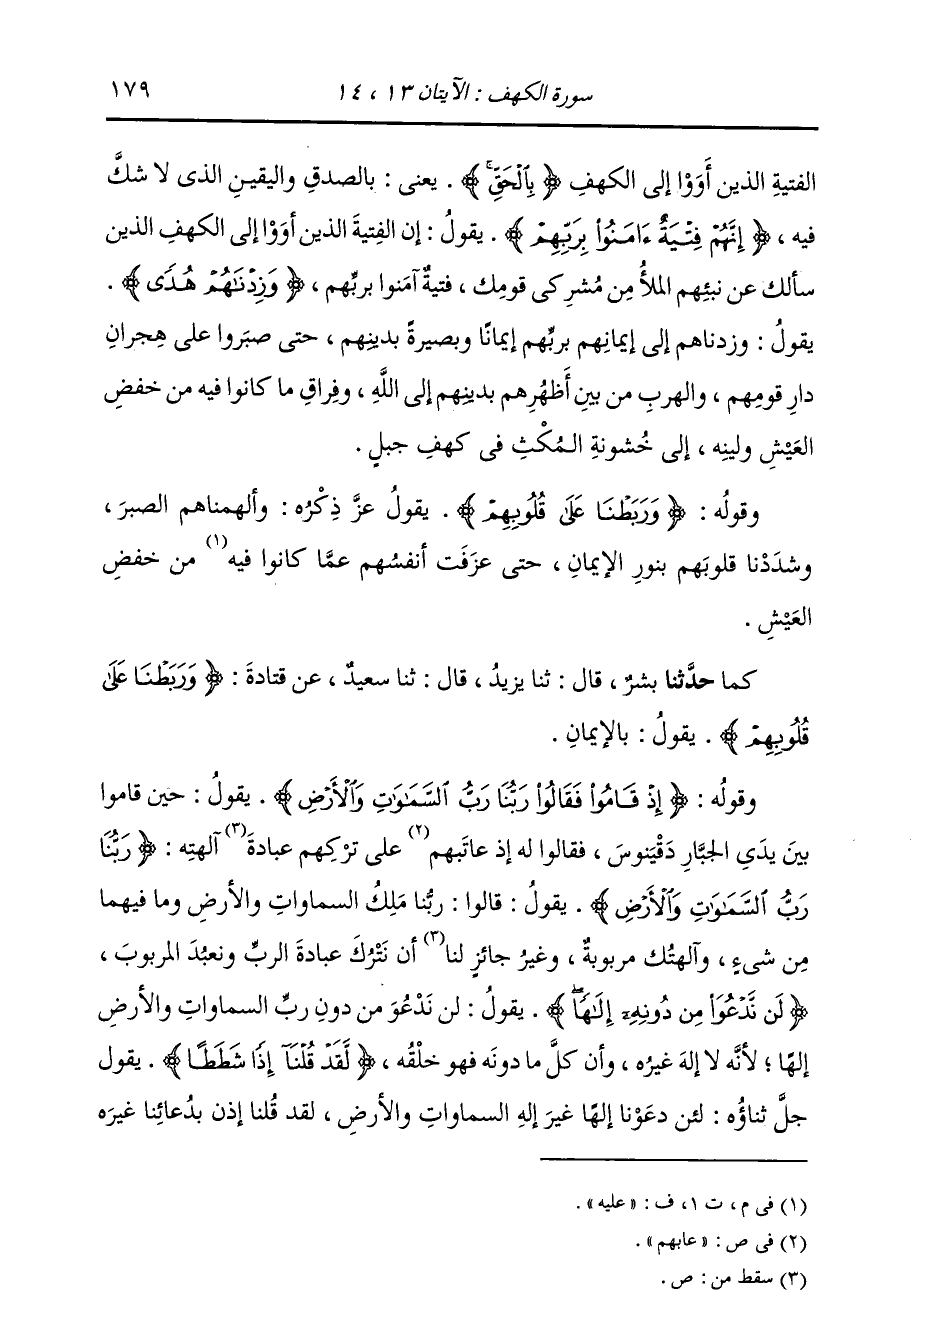 سورة الكهف : الآيتان ١٣ ، ١٤
١٧٩
الفتيةِ الذين أَوَوْا إلى الكهفِ ﴿ بِٱلْحَقِّۚ ﴾ . يعنى : بالصدقِ واليقينِ الذى لا شكَّ
فيه ، ﴿ إِنَّهُمْ فِتْيَةٌ ءَامَنُوا۟ بِرَبِّهِمْ ﴾ . يقولُ : إن الفِتيةَ الذين أوَوْا إلى الكهفِ الذين
سألك عن نبئِهم الملأُ مِن مُشركى قومِك ، فتيةٌ آمَنوا بربِّهم ، ﴿ وَزِدْنَٰهُمْ هُدًى ﴾ .
يقولُ : وزدناهم إلى إيمانِهم بربِّهم إيمانًا وبصيرةً بدينِهم ، حتى صبَروا على هِجرانِ
دارِ قومِهم ، والهربِ من بينِ أَظهُرِهم بدينِهم إلى اللَّهِ ، وفِراقِ ما كانوا فيه من خفضِ
العَيْشِ ولينِه ، إلى خُشونةِ المُكْثِ فى كهفِ جبلٍ .
وقولُه : ﴿ وَرَبَطْنَا عَلَىٰ قُلُوبِهِمْ ﴾ . يقولُ عزَّ ذِكْرُه : وألهمناهم الصبرَ ،
وشدَدْنا قلوبَهم بنورِ الإيمانِ ، حتى عزَفَت أنفسُهم عمَّا كانوا فيه(١) من خفضِ
العَيْشِ .
كما حدَّثنا بشرٌ ، قال : ثنا يزيدُ ، قال : ثنا سعيدٌ ، عن قتادةَ : ﴿ وَرَبَطْنَا عَلَىٰ
قُلُوبِهِمْ ﴾ . يقولُ : بالإيمانِ .
وقولُه : ﴿ إِذْ قَامُوا۟ فَقَالُوا۟ رَبُّنَا رَبُّ ٱلسَّمَٰوَٰتِ وَٱلْأَرْضِ ﴾ . يقولُ : حين قاموا
بينَ يدَىِ الجبَّارِ دَقْيَنوسَ ، فقالوا له إذ عاتَبهم(٢) على ترْكِهم عبادةَ(٣) آلهتِه : ﴿ رَبُّنَا
رَبُّ ٱلسَّمَٰوَٰتِ وَٱلْأَرْضِ ﴾ . يقولُ : قالوا : ربُّنا مَلِكُ السماواتِ والأرضِ وما فيهما
مِن شىءٍ ، وآلهتُك مربوبةٌ ، وغيرُ جائزٍ لنا(٣) أن نَتْرُكَ عبادةَ الربِّ ونعبُدَ المربوبَ ،
﴿ لَن نَّدْعُوَا۟ مِن دُونِهِۦٓ إِلَٰهًاۖ ﴾ . يقولُ : لن نَدْعُوَ من دونِ ربِّ السماواتِ والأرضِ
إلهًا ؛ لأنَّه لا إلهَ غيرُه ، وأن كلَّ ما دونَه فهو خلْقُه ، ﴿ لَّقَدْ قُلْنَآ إِذًا شَطَطًا ﴾ . يقول
جلَّ ثناؤُه : لئن دعَوْنا إلهًا غيرَ إلهِ السماواتِ والأرضِ ، لقد قُلنا إذن بدُعائِنا غيرَه
(١) فى م ، ت ١ ، ف : «عليه» .
(٢) فى ص : «عابهم» .
(٣) سقط من : ص .